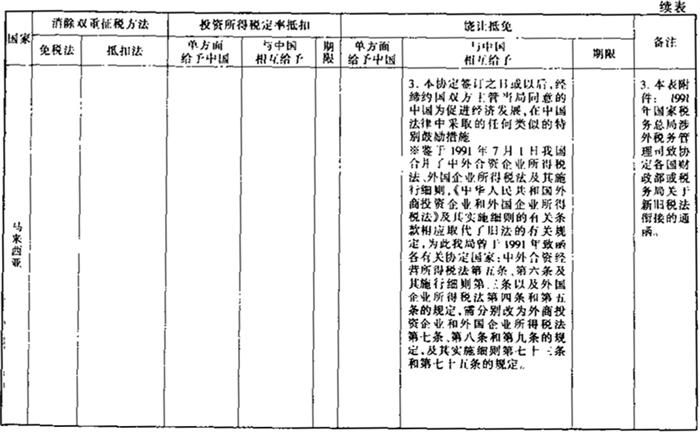 续表
国家
消除双重征税方法
投资所得税定率抵扣
饶让抵免
备注
免税法
抵扣法
单方面
给予中国
与中国
相互给予
期限
单方面
给予中国
与中国
相互给予
期限
马来西亚
3. 本协定签订之日或以后,经
缔约国双方主管当局同意的
中国为促进经济发展,在中国
法律中采取的任何类似的特
别鼓励措施
※鉴于1991年7月1日我国
合并了中外合资企业所得税
法、外国企业所得税法及其施
行细则,《中华人民共和国外
商投资企业和外国企业所得
税法》及其实施细则的有关条
款相应取代了旧法的有关规
定,为此我局曾于1991年致函
各有关协定国家:中外合资经
营所得税法第五条、第六条及
其施行细则第三条以及外国
企业所得税法第四条和第五
条的规定,需分别改为外商投
资企业和外国企业所得税法
第七条、第八条和第九条的规
定,及其实施细则第七十三条
和第七十五条的规定。
3. 本表附
件: 1991
年国家税
务总局涉
外税务管
理司致协
定各国财
政部或税
务局关于
新旧税法
衔接的通
函。